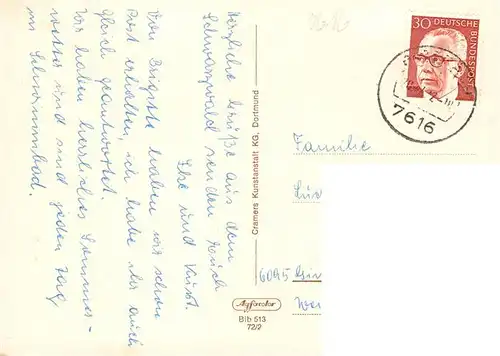 Herzliche Grüße aus dem
Schwarzwald senden Euch
Ilse und Kurt.
Von Brigitte haben wir schon
Post erhalten, ich habe ihr auch
gleich geantwortet.
Wir haben herrliches Sommer-
wetter und sind jeden Tag
im Schwimmbad.
Cramers Kunstanstalt KG, Dortmund
Agfacolor
Blb 513
72/2
30 DEUTSCHE
BUNDESPOST
7616
Familie
6095